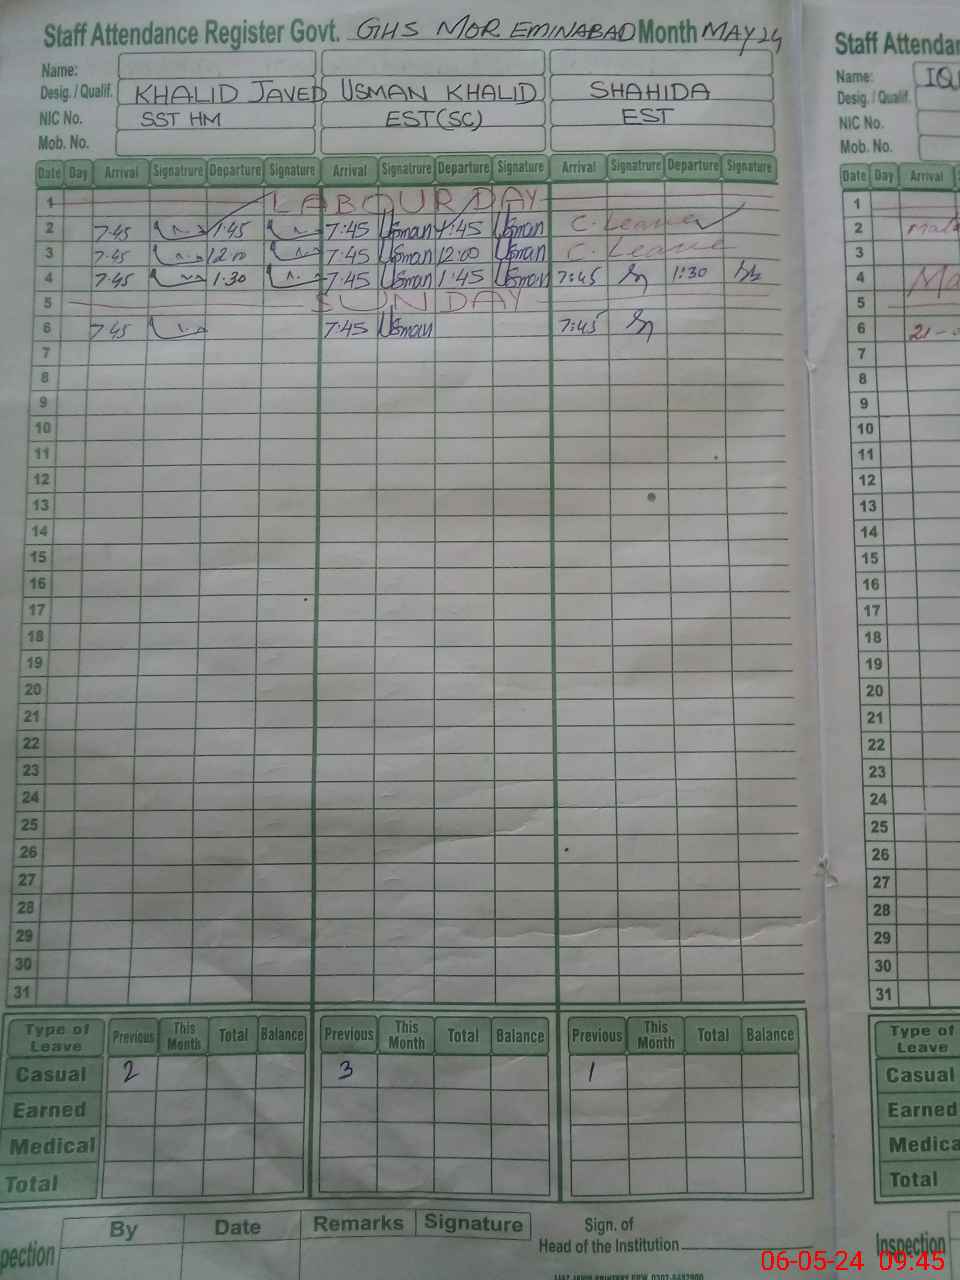 Staff Attendance Register Govt. GHS MOR EMINABAD Month MAY24
Name:
Desig. / Qualif. KHALID JAVED USMAN KHALID SHAHIDA
NIC No. SST HM EST(SC) EST
Mob. No.
Date Day Arrival Signatrure Departure Signature Arrival Signatrure Departure Signature Arrival Signatrure Departure Signature
1 LABOUR DAY
2 7:45 1:45 7:45 Usman 1:45 Usman C. Leave
3 7:45 12:00 7:45 Usman 12:00 Usman C. Leave
4 7:45 1:30 7:45 Usman 1:45 Usman 7:45 1:30
5 SUNDAY
6 7:45 7:45 Usman 7:45
7
8
9
10
11
12
13
14
15
16
17
18
19
20
21
22
23
24
25
26
27
28
29
30
31
Type of Leave Previous This Month Total Balance Previous This Month Total Balance Previous This Month Total Balance
Casual 2 3 1
Earned
Medical
Total
By Date Remarks Signature
pection
Sign. of
Head of the Institution
Staff Attendan
Name: IQ
Desig. / Qualif.
NIC No.
Mob. No.
Date Day Arrival
1
2
3
4
5
6
7
8
9
10
11
12
13
14
15
16
17
18
19
20
21
22
23
24
25
26
27
28
29
30
31
Type of
Leave
Casual
Earned
Medica
Total
Inspection
06-05-24 09:45